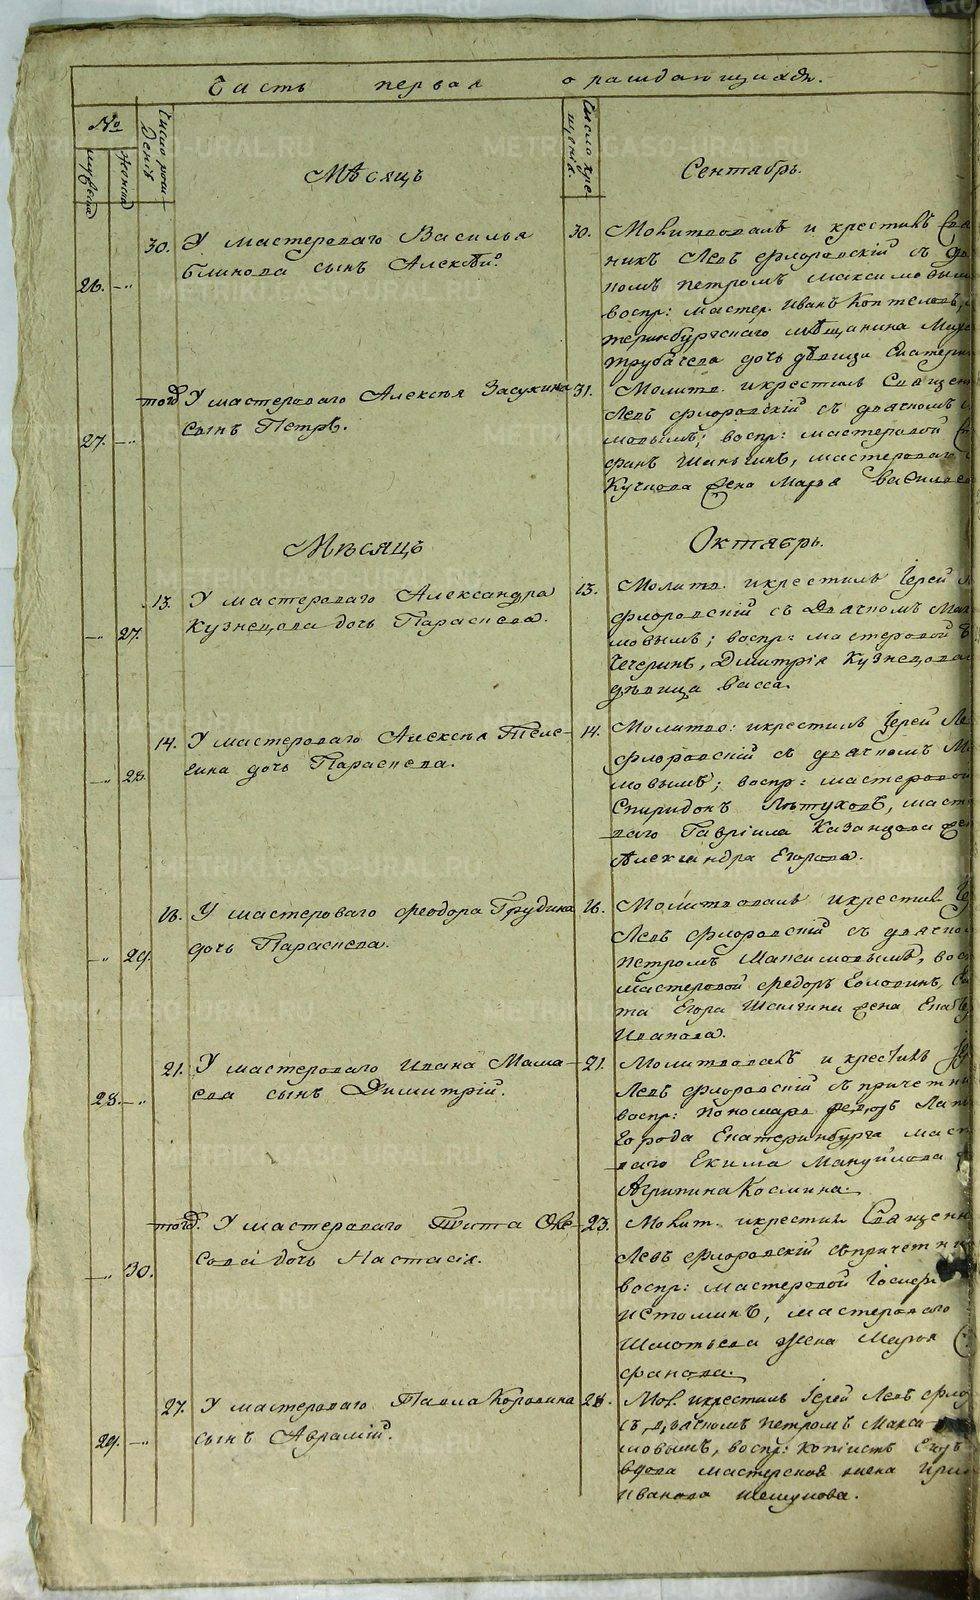 Часть первая о раждающихся.
№
мужеска
женска
Число рожденiя
Число крещенiя.
Мѣсяцъ
Сентябрь.
26. 30. У мастероваго Василья
Блинова сынъ Алексѣй.
30. Молитвовалъ и крестилъ
никъ Левъ Флоровскій съ
номъ Петромъ Максимовымъ
воспр: мастер. Иванъ Коптеловъ,
теринбургскаго мѣщанина
Трубачева дочь дѣвица Екатерин
27. тогд. У мастероваго Алексѣя Засухина
сынъ Петръ.
31. Молитв. и крестилъ Священ
Левъ Флоровскій съ дьячкомъ
мовымъ; воспр: мастеровой
фанъ Шаньгинъ, мастероваго
Кучкова жена Марья Васильев
Мѣсяцъ
Октябрь.
27. 13. У мастероваго Александра
Кузнецова дочь Параскева.
13. Молитв. и крестилъ Iерей
Флоровскій съ Дьячкомъ Мак
мовымъ; воспр: мастеровой
Чечеринъ, Дмитрiя Кузнецова
дѣвица Васса.
28. 14. У мастероваго Алексѣя Теле-
гина дочь Параскева.
14. Молитво: и крестилъ Iерей Ле
Флоровскій съ дьячкомъ Ма
мовымъ; воспр: мастеровой
Спиридонъ Пѣтуховъ, масте
ваго Гаврiила Казанцова жен
Александра Егорова.
29. 16. У мастероваго Феодора Грудина
дочь Параскева.
16. Молитвовалъ и крестилъ
Левъ Флоровскій съ дьячко
Петромъ Максимовымъ, вос
мастеровой Федоръ
та Егора жена Елизав
Иванова.
28. 21. У мастероваго Ивана Мама-
ева сынъ Димитрій.
21. Молитвовалъ и крестилъ
Левъ Флоровскій съ причетни
воспр: пономарь Федоръ
города Екатеринбурга маст
ваго Екима Мануйлова
Агрипина Космина.
30. тогд. У мастероваго Тита Ове-
сова дочь Настасiя.
23. Молит. и крестилъ Священн
Левъ Флоровскій съ причетни
воспр: мастеровой
Истоминъ, мастероваго
жена Марья
фанова.
29. 27. У мастероваго Павла Коровина
сынъ Аврамій.
28. Мол. и крестилъ Iерей Левъ Фло
съ дьячкомъ Петромъ Макси-
мовымъ, воспр: копiистъ
вдова мастерская жена
Иванова
METRIKI.GASO-URAL.RU